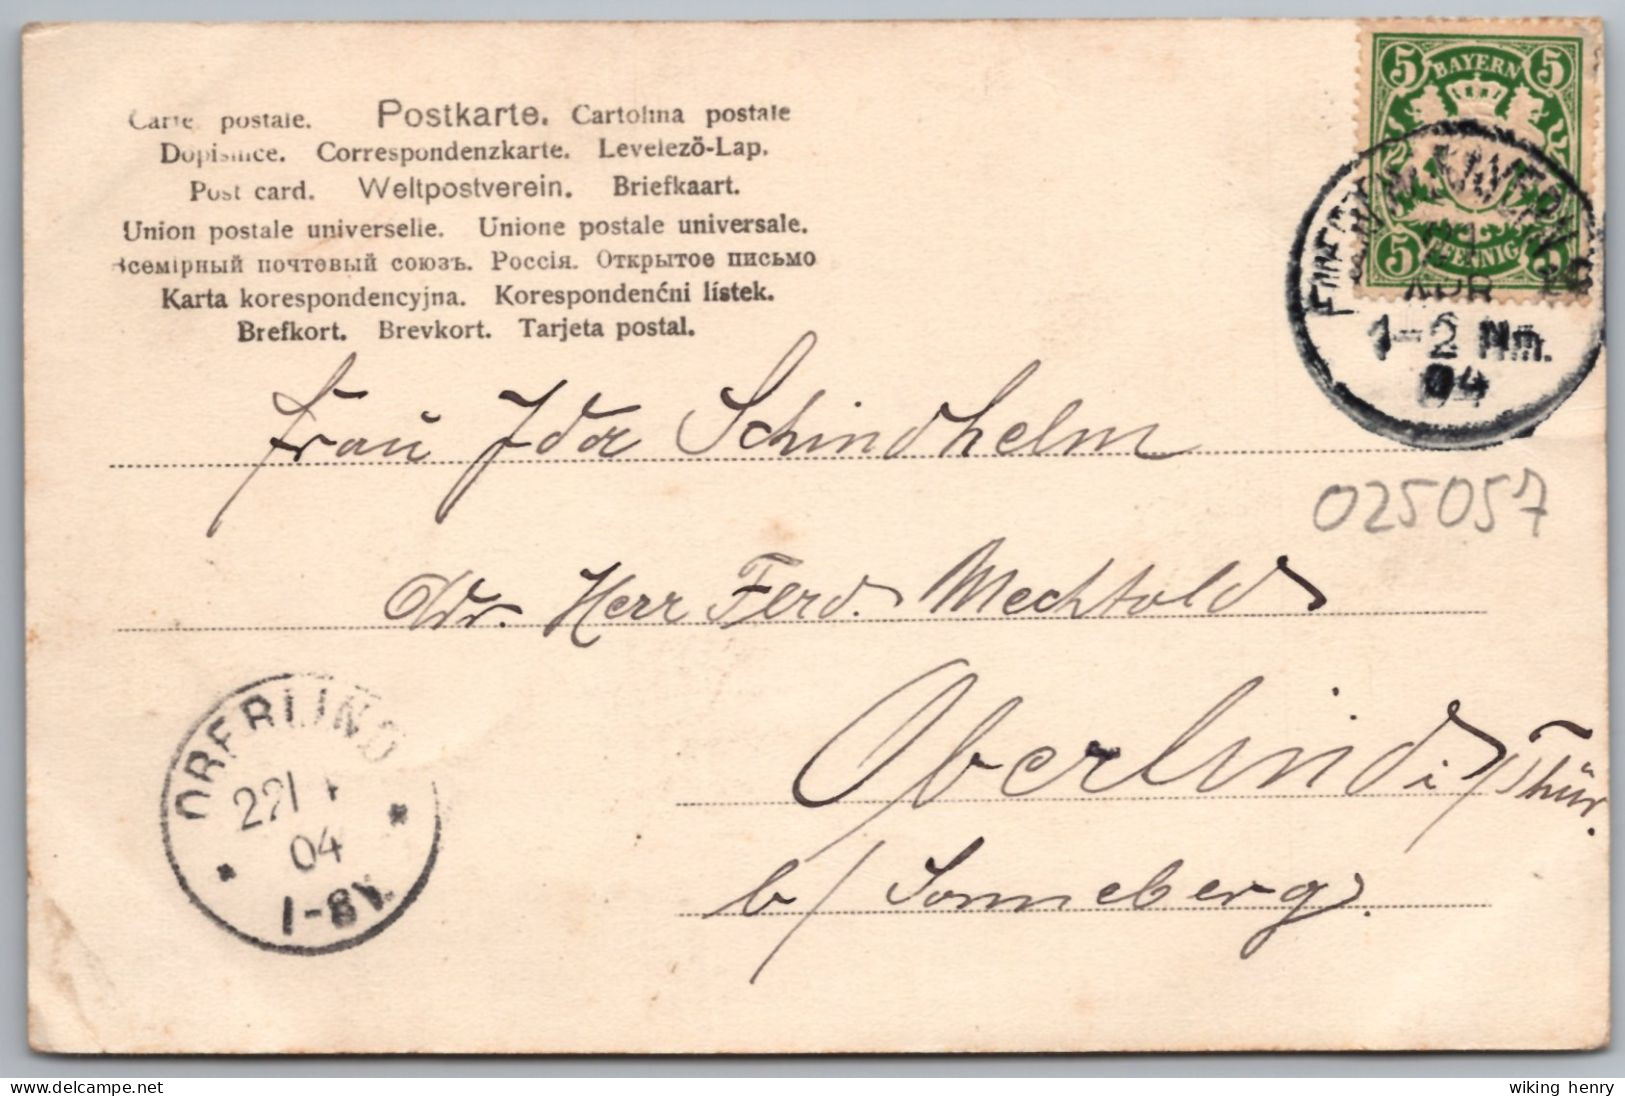 Carte postale. Postkarte. Cartolina postale
Dopisnice. Correspondenzkarte. Levelező-Lap.
Post card. Weltpostverein. Briefkaart.
Union postale universelle. Unione postale universale.
Всемірный почтовый союзъ. Россія. Открытое письмо
Karta korespondencyjna. Korespondenčni lístek.
Brefkort. Brevkort. Tarjeta postal.
5 BAYERN 5
5 PFENNIG 5
21
APR
1-2 Nm.
04
Frau Ida Schindhelm
025057
Adr. Herr Ferd. Mechtold
Oberlind i/Thür.
b/Sonneberg.
OBERLIND
22
04
1-8V.
delcampe.net
wiking henry